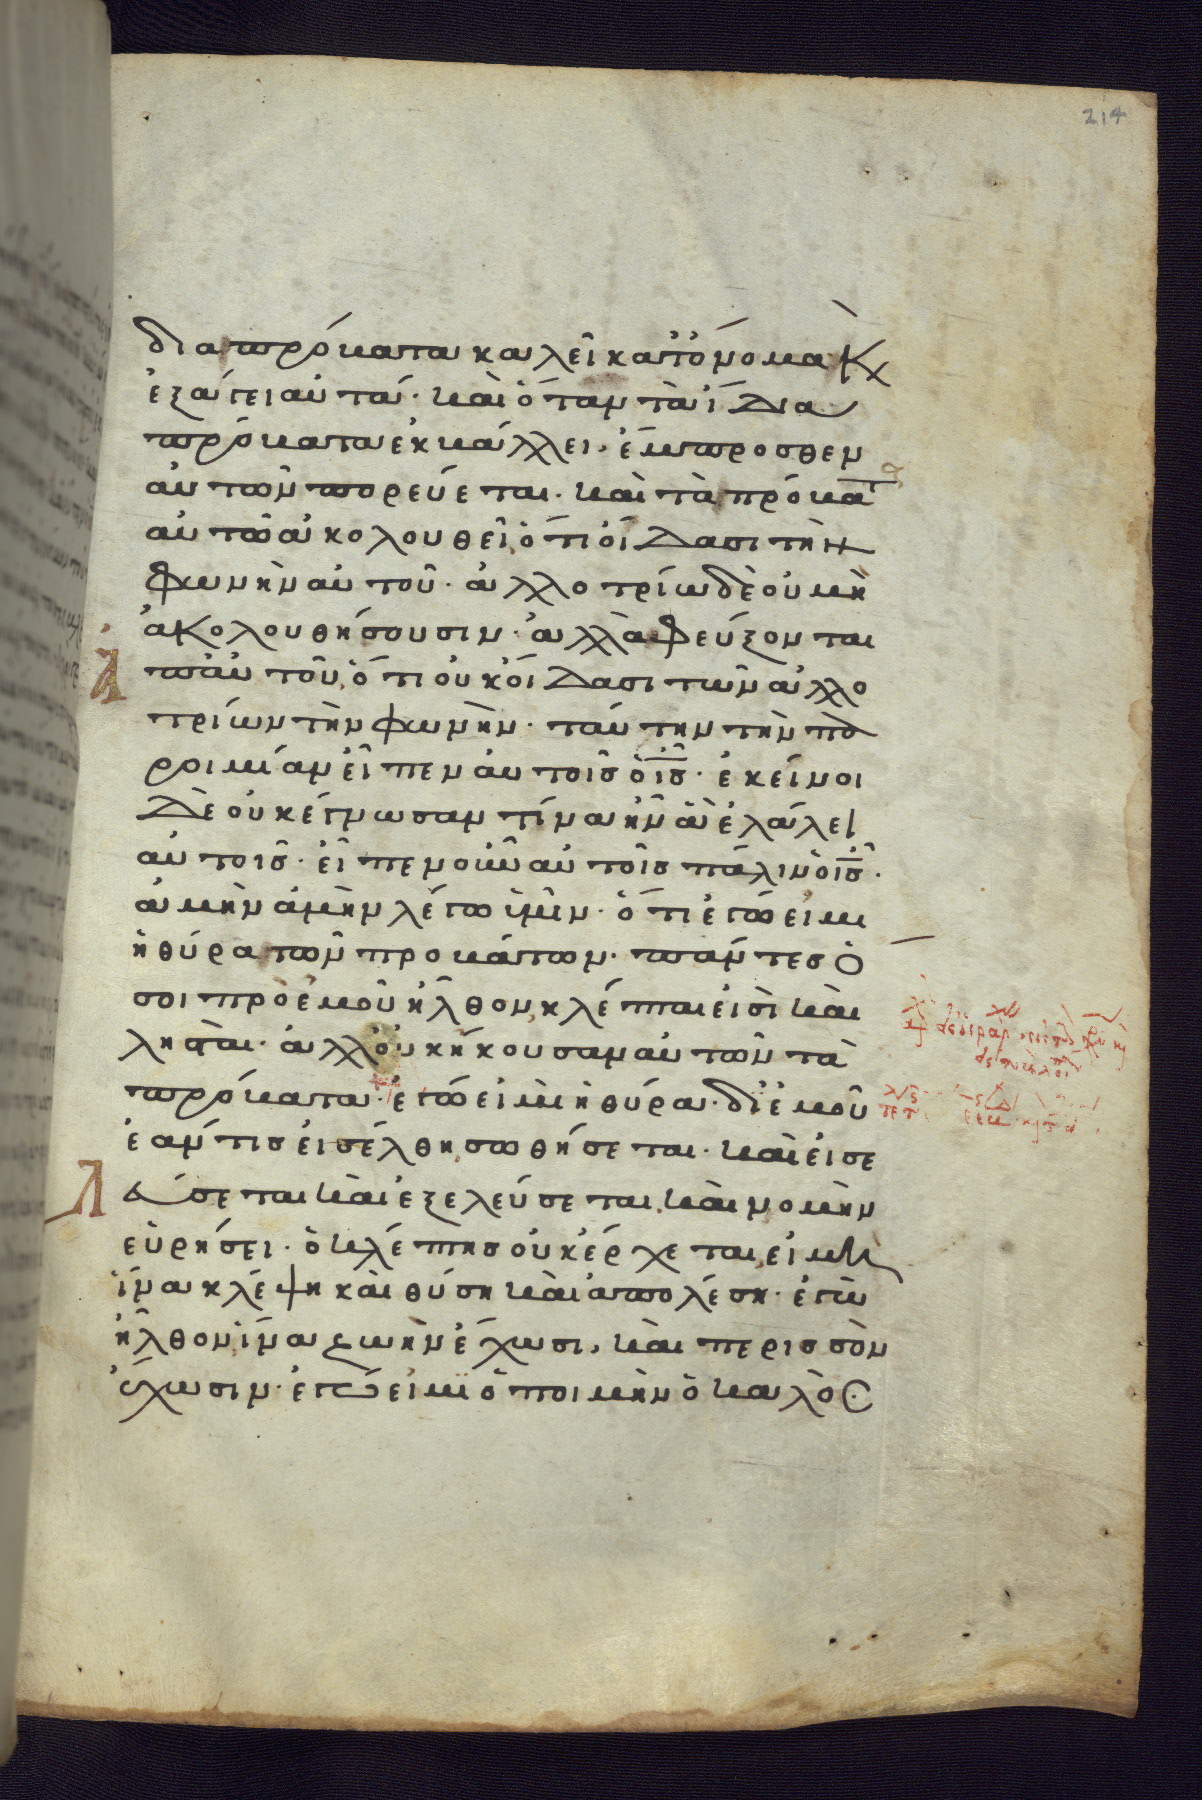 214
δια πρόβατα καλεῖ κατ᾽ όνομα κ(αὶ)
ἐξάγει αὐτά· καὶ ὅταν τὰ ἴδια
πρόβατα ἐκβάλλει, ἔμπροσθεν
αὐτῶν πορεύεται· καὶ τὰ πρόβατ
αὐτῶ ἀκολουθεῖ, ὅτι οἴδασι τὴν
φωνὴν αὐτοῦ· ἀλλοτρίω δὲ οὐ μὴ
ἀκολουθήσουσιν· ἀλλὰ φεύξονται
ἀπ᾽ αὐτοῦ, ὅτι οὐκ οἴδασι τῶν ἀλλο
τρίων τὴν φωνήν· ταύτην τὴν πα
ροιμίαν εἶπεν αὐτοῖς ὁ ις· ἐκεῖνοι
δὲ οὐκ ἔγνωσαν τίνα ἦν ἃ ἐλάλει
αὐτοῖς· εἶπεν οὖν αὐτοῖς πάλιν ὁ ις·
ἀμὴν ἀμὴν λέγω ὑμῖν· ὅτι ἐγώ εἰμι
ἡ θύρα τῶν προβάτων· πάντες ὅ
σοι πρὸ ἐμοῦ ἦλθον, κλέπται εἰσὶ καὶ
λησταί· ἀλλ᾽ οὐκ ἤκουσαν αὐτῶν τὰ
πρόβατα· ἐγώ εἰμι ἡ θύρα· δι᾽ ἐμοῦ
ἐάν τις εἰσέλθη, σωθήσεται· καὶ εἰσε
λεύσεται καὶ ἐξελεύσεται, καὶ νομὴν
εὑρήσει· ὁ κλέπτης οὐκ ἔρχεται, εἰ μὴ
ἵνα κλέψη καὶ θύση καὶ ἀπολέση· ἐγὼ
ἦλθον, ἵνα ζωὴν ἔχωσι, καὶ περισσὸν
ἔχωσιν· ἐγώ εἰμι ὁ ποιμὴν ὁ καλός